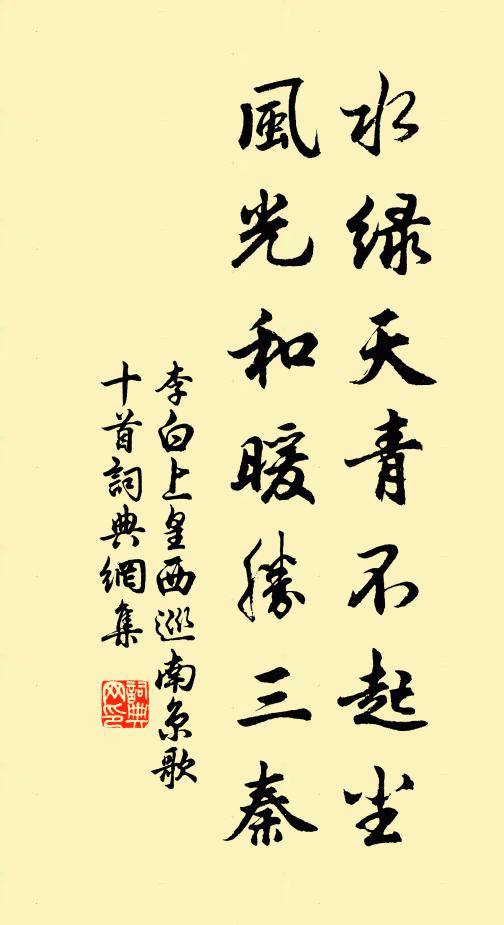 水緑天青不起尘
風光和暖勝三秦
李白上皇西巡南京歌
十首詞典網集
詞典网印